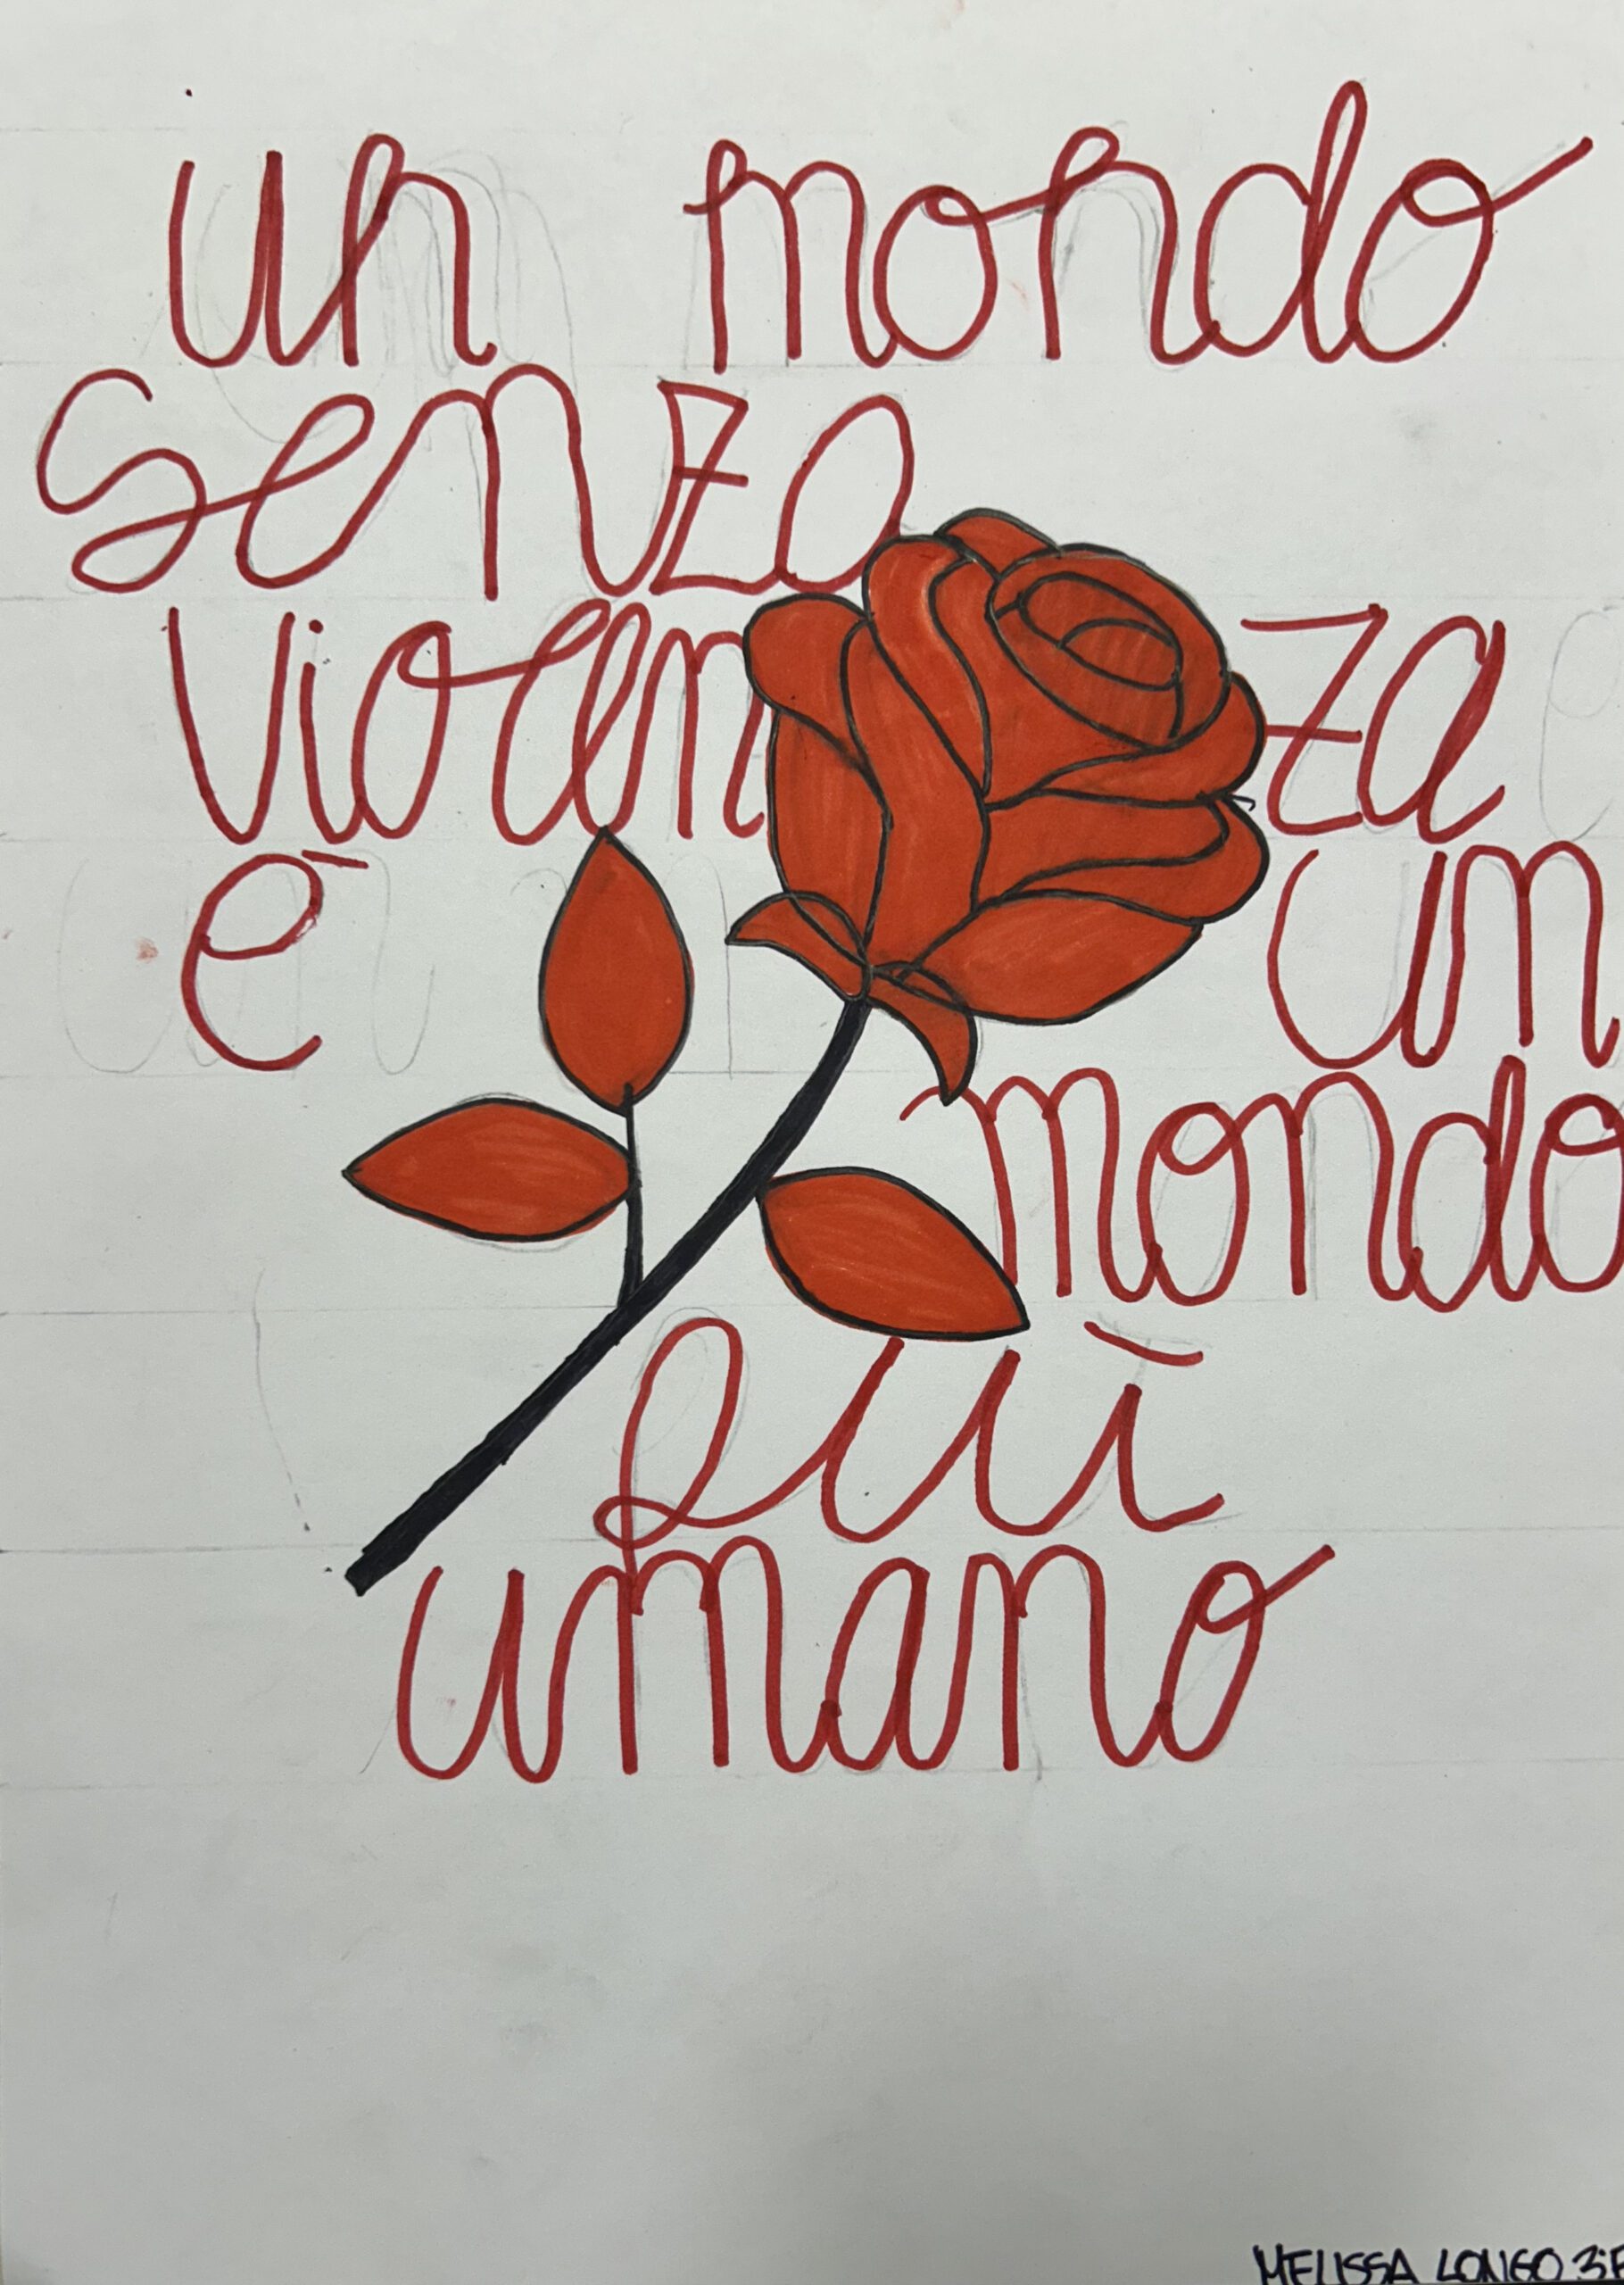 un mondo
senza
violenza
è un
mondo
più
umano
MELISSA LONGO 3E